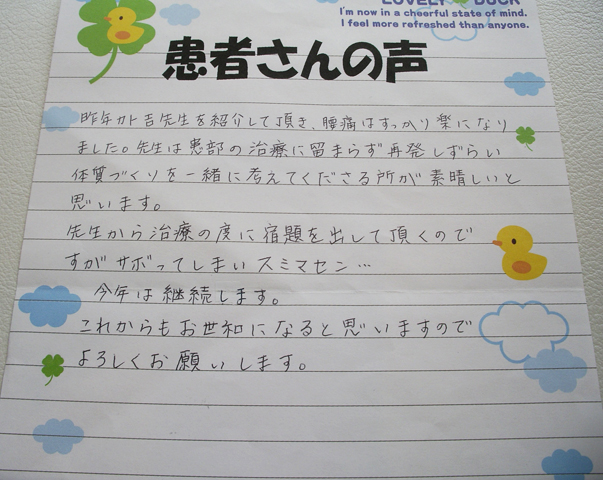 LOVELY DUCK
I'm now in a cheerful state of mind.
I feel more refreshed than anyone.
患者さんの声
昨年から吉先生を紹介して頂き、腰痛はすっかり楽になり
ました。先生は患部の治療に留まらず再発しずらい
体質づくりを一緒に考えてくださる所が素晴しいと
思います。
先生から治療の度に宿題を出して頂くので
すがサボってしまいスミマセン…
今年は継続します。
これからもお世和になると思いますので
よろしくお願いします。